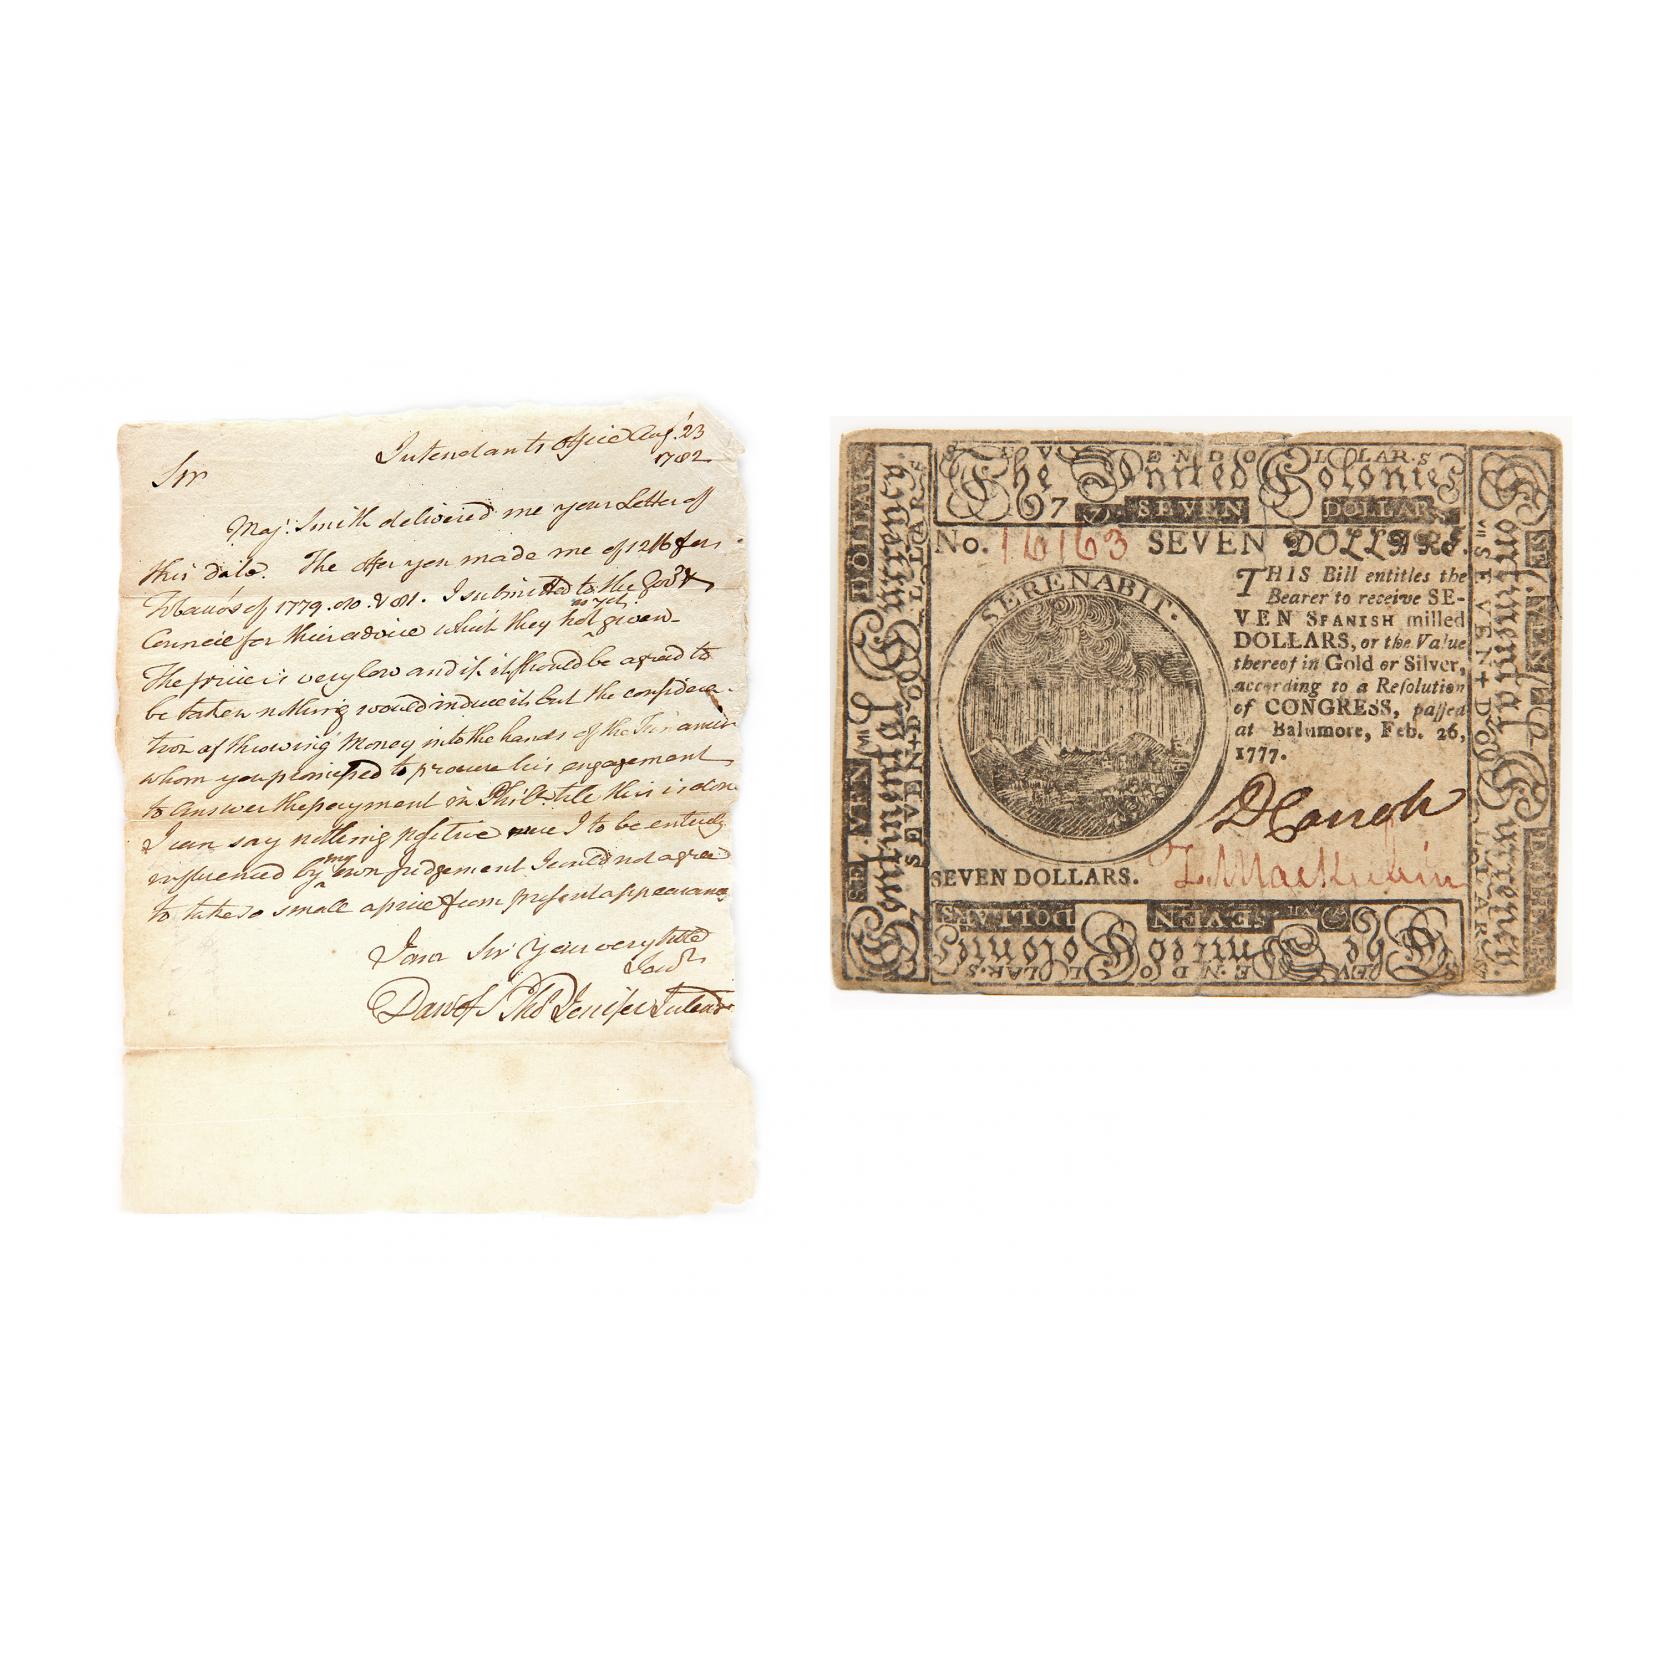 Intendants office Aug.t 23
1782
Sir
Maj.r Smith delivered me your Letter of
this date. The offer you made me of 12/6 for
Tobacco's of 1779. 80. & 81. I submitted to the Gov.r &
Council for their advice which they not yet given
The price is very low and if it should be agreed to
be taken nothing would induce it but the considera-
tion of throwing Money into the hands of the Financier
whom you promised to procure his engagement
to answer the payment in Phil.a till this is done
I can say nothing positive were I to be entirely
influenced by my own judgement I could not agree
to take so small a price from present appearances
I am Sir Your very hble
Serv.t
Dan of S.t Tho.s Jenifer Intend.t
SEVEN DOLLARS
The United Colonies
7 SEVEN DOLLARS
No. 16163 SEVEN DOLLARS.
SERENABIT.
THIS Bill entitles the
Bearer to receive SE-
VEN SPANISH milled
DOLLARS, or the Value
thereof in Gold or Silver,
according to a Resolution
of CONGRESS, passed
at Baltimore, Feb. 26,
1777.
SEVEN DOLLARS.
SEVEN DOLLARS
Continental Currency
SEVEN DOLLARS
VII SEVEN DOLLARS
Continental Currency.
SEVEN DOLLARS
The United Colonies
SEVEN DOLLARS